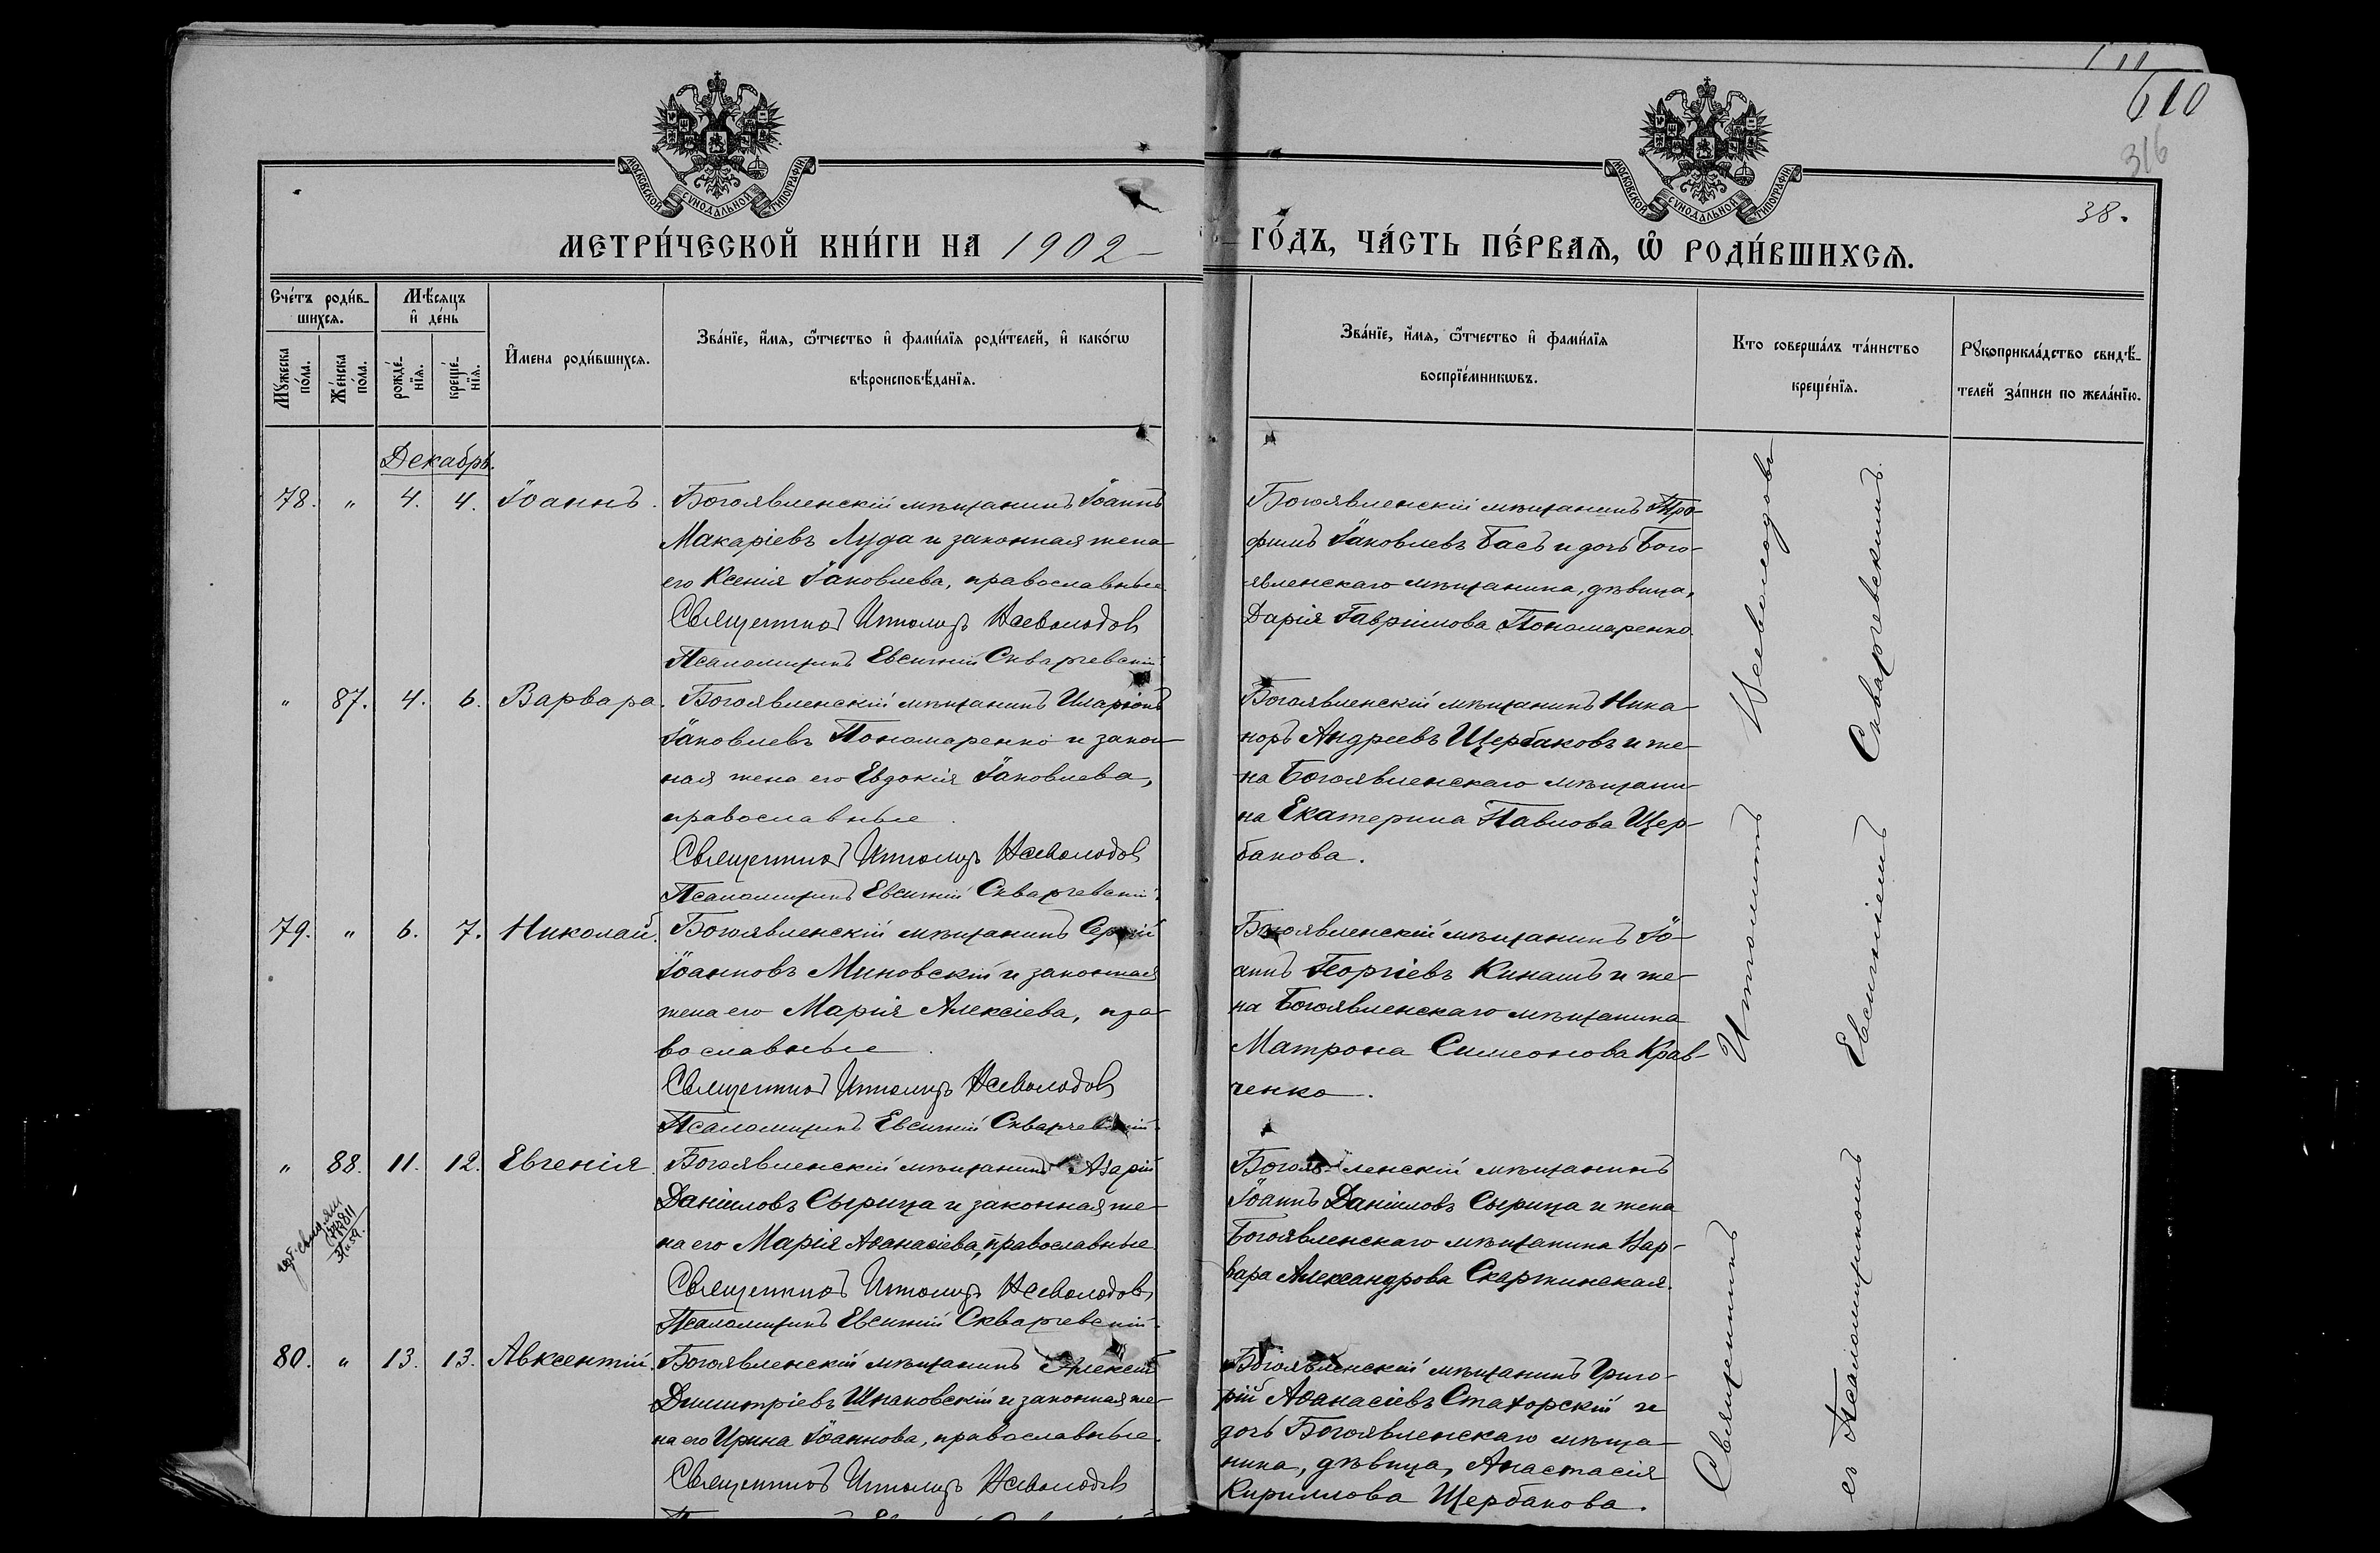 610
316
38.
МОСКОВСКОЙ СѴНОДАЛЬНОЙ ТИПОГРАФІИ
МОСКОВСКОЙ СѴНОДАЛЬНОЙ ТИПОГРАФІИ
МЕТРИ́ЧЕСКОЙ КНИ́ГИ НА 1902 ГО́ДЪ, ЧА́СТЬ ПЕ́РВАѦ, Ѡ҆ РОДИ́ВШИХСѦ.
Сче́тъ роди́в-
шихсѧ.
Мꙋ́жеска по́ла.
Же́нска по́ла.
Мѣ́сѧцъ
и҆ де́нь
рожде́-нїѧ.
креще́-нїѧ.
И҆мена роди́вшихсѧ.
Зва́нїе, и҆́мѧ, ѻ҆́тчество и҆ фами́лїѧ роди́телей, и҆ како́гѡ
вѣроисповѣ́данїѧ.
Зва́нїе, и҆́мѧ, ѻ҆́тчество и҆ фами́лїѧ
воспрїе́мникѡвъ.
Кто соверша́лъ та́инство
креще́нїѧ.
Рꙋкоприкла́дство свидѣ́-
телей за́писи по жела́нїю.
Декабрь.
78. " 4. 4. Іоаннъ. Богоявленскій мѣщанинъ Іоаннъ
Макаріевъ Луда и законная жена
его Ксенія Іаковлева, православные
Священникъ Ипполитъ Всеволодовъ
Псаломщикъ Евсигній Скваржевскій.
Богоявленскій мѣщанинъ Тро-
фимъ Іаковлевъ Басъ и дочь Бого-
явленскаго мѣщанина, дѣвица,
Дарія Гавріилова Пономаренко.
" 87. 4. 6. Варвара. Богоявленскій мѣщанинъ Иларіонъ
Іаковлевъ Пономаренко и закон-
ная жена его Евдокія Іаковлева,
православные.
Священникъ Ипполитъ Всеволодовъ
Псаломщикъ Евсигній Скваржевскій.
Богоявленскій мѣщанинъ Ника-
норъ Андреевъ Щербаковъ и же-
на Богоявленскаго мѣщани-
на Екатерина Павлова Щер-
бакова.
79. " 6. 7. Николай. Богоявленскій мѣщанинъ Сергій
Іоанновъ Миновскій и законная
жена его Марія Алексіева, пра-
вославные.
Священникъ Ипполитъ Всеволодовъ
Псаломщикъ Евсигній Скваржевскій.
Богоявленскій мѣщанинъ Іо-
аннъ Георгіевъ Кинашъ и же-
на Богоявленскаго мѣщанина
Матрона Симеонова Крав-
ченко.
" 88. 11. 12. Евгенія. Богоявленскій мѣщанинъ Азарій
Даніиловъ Сырица и законная же-
на его Марія Аѳанасіева, православные.
Священникъ Ипполитъ Всеволодовъ
Псаломщикъ Евсигній Скваржевскій.
Богоявленскій мѣщанинъ
Іоаннъ Даніиловъ Сырица и жена
Богоявленскаго мѣщанина Вар-
вара Александрова Скаржинская.
80. " 13. 13. Авксентій. Богоявленскій мѣщанинъ Алексій
Димитріевъ Шпаковскій и законная же-
на его Ирина Іоаннова, православные.
Священникъ Ипполитъ Всеволодовъ
Богоявленскій мѣщанинъ Григо-
рій Аѳанасіевъ Статорскій и
дочь Богоявленскаго мѣща-
нина, дѣвица, Анастасія
Кириллова Щербакова.
Священникъ Ипполитъ Всеволодовъ
съ Псаломщикомъ Евсигніемъ Скваржевскимъ.